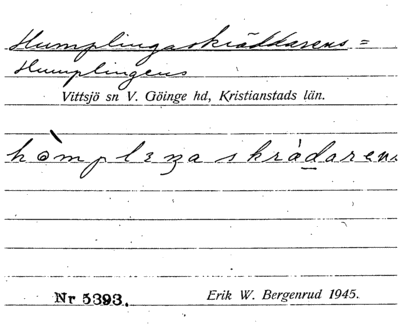 Humplingaskräddarens =
Humplingens
Vittsjö sn V. Göinge hd, Kristianstads län.
hòmpleŋa skràdarens
Nr 5393. Erik W. Bergenrud 1945.